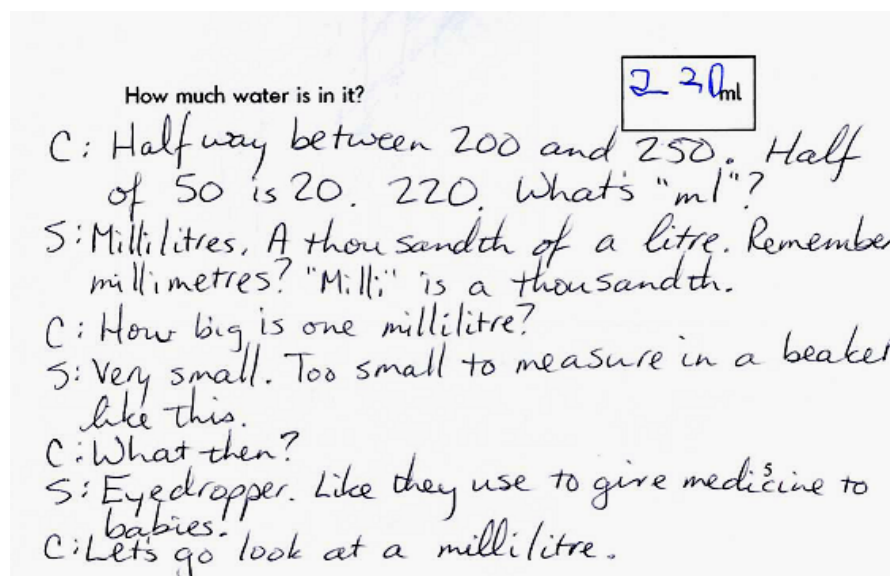 How much water is in it? 220ml
C: Half way between 200 and 250. Half
of 50 is 20. 220. What's "ml"?
S: Millilitres. A thousandth of a litre. Remember
millimetres? "Milli" is a thousandth.
C: How big is one millilitre?
S: Very small. Too small to measure in a beaker
like this.
C: What then?
S: Eyedropper. Like they use to give medisine to
babies.
C: Let's go look at a millilitre.